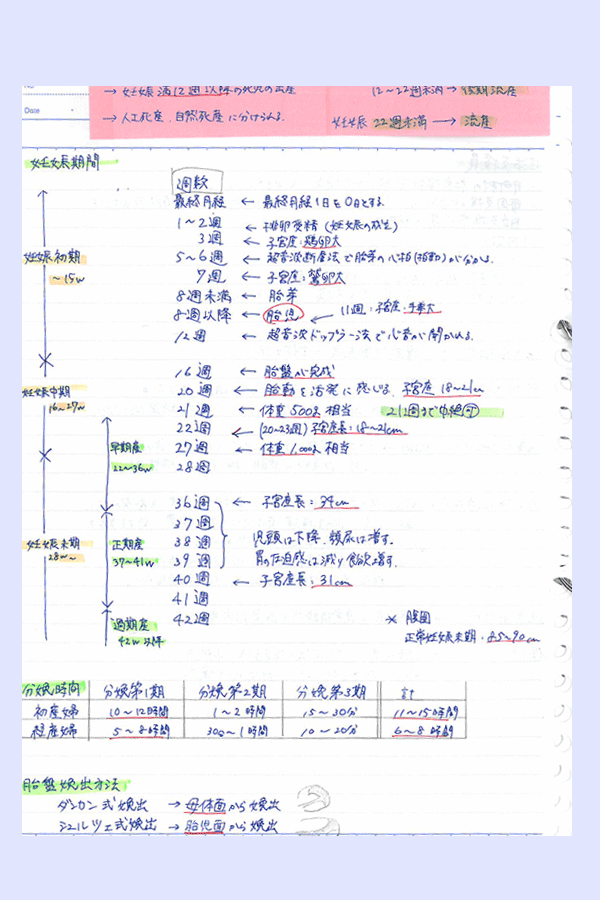 Date
→ 妊娠満12週以降の死児の出産
12〜22週未満 → 後期流産
→ 人工死産、自然死産に分けられる
妊娠 22週未満 → 流産
妊娠期間
週数
最終月経 ← 最終月経1日を0日とする.
1〜2週 ← 排卵受精(妊娠の成立)
3週 ← 子宮底:鶏卵大
妊娠初期
5〜6週 ← 超音波断層法で胎芽の心拍(拍動)が分かる.
〜15w
7週 ← 子宮底:鵞卵大
8週未満 ← 胎芽
8週以降 ← 胎児 ← 11週:子宮底:手拳大
12週 ← 超音波ドップラー法で心音が聞かれる.
16週 ← 胎盤が完成
妊娠中期
20週 ← 胎動を活発に感じる. 子宮底 18〜21cm
16〜27w
21週 ← 体重500g相当 21週まで中絶可
22週 ← (20〜23週)子宮底長:18〜21cm
早期産
27週 ← 体重1,000g相当
22〜36w
28週
36週 ← 子宮底長:34cm
37週
妊娠末期
正期産
38週 児頭は下降、頻尿は増す.
28w〜
37〜41w
39週 胃の圧迫感は減り食欲増す.
40週 ← 子宮底長:31cm
41週
過期産
42週
* 腹囲
42w以降
正常妊娠末期:85〜90cm
分娩時間 分娩第1期 分娩第2期 分娩第3期 計
初産婦 10〜12時間 1〜2時間 15〜30分 11〜15時間
経産婦 5〜8時間 30分〜1時間 10〜20分 6〜8時間
胎盤娩出方法
ダンカン式娩出 → 母体面から娩出
シュルツェ式娩出 → 胎児面から娩出